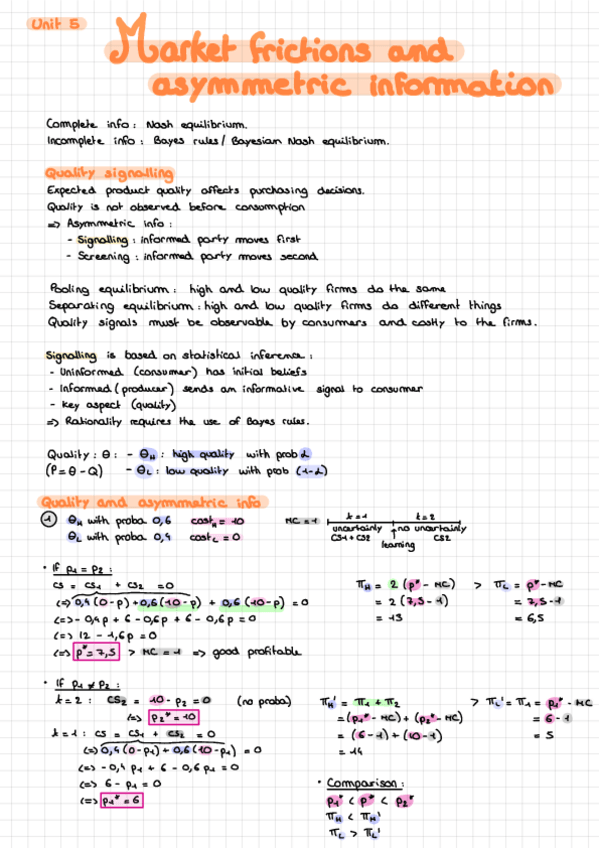 Unit 5
Market frictions and
asymmetric information
Complete info : Nash equilibrium.
Incomplete info : Bayes rules / Bayesian Nash equilibrium.
Quality signalling
Expected product quality affects purchasing decisions.
Quality is not observed before consumption
=> Asymmetric info :
- Signalling : informed party moves first
- Screening : informed party moves second
Pooling equilibrium : high and low quality firms do the same
Separating equilibrium : high and low quality firms do different things
Quality signals must be observable by consumers and costly to the firms.
Signalling is based on statistical inference :
- Uninformed (consumer) has initial beliefs
- Informed (producer) sends an informative signal to consumer
- Key aspect (quality)
=> Rationality requires the use of Bayes rules.
Quality : θ : - θH : high quality with prob α
(P = θ - Q) - θL : low quality with prob (1-α)
Quality and asymmetric info
① θH with proba 0,6 costH = 10 MC = 1 t=1 t=2
θL with proba 0,4 costL = 0 uncertainty no uncertainty
CS1 + CS2 CS2
learning
• If p1 = p2 :
CS = CS1 + CS2 = 0 πH = 2 (p* - MC) > πL = p* - MC
(=) 0,4 (0 - p) + 0,6 (10 - p) + 0,6 (10 - p) = 0 = 2 (7,5 - 1) = 7,5 - 1
(=) - 0,4p + 6 - 0,6p + 6 - 0,6p = 0 = 13 = 6,5
(=) 12 - 1,6p = 0
(=) p* = 7,5 > MC = 1 => good profitable
• If p1 ≠ p2 :
t = 2 : CS2 = 10 - p2 = 0 (no proba) πH' = π1 + π2 > πL' = π1 = p1* - MC
(=) p2* = 10 = (p1* - MC) + (p2* - MC) = 6 - 1
t = 1 : CS = CS1 + CS2 = 0 = (6 - 1) + (10 - 1) = 5
(=) 0,4 (0 - p1) + 0,6 (10 - p1) = 0 = 14
(=) - 0,4 p1 + 6 - 0,6 p1 = 0
(=) 6 - p1 = 0 • Comparison :
(=) p1* = 6 p1* < p* < p2*
πH < πH'
πL > πL'